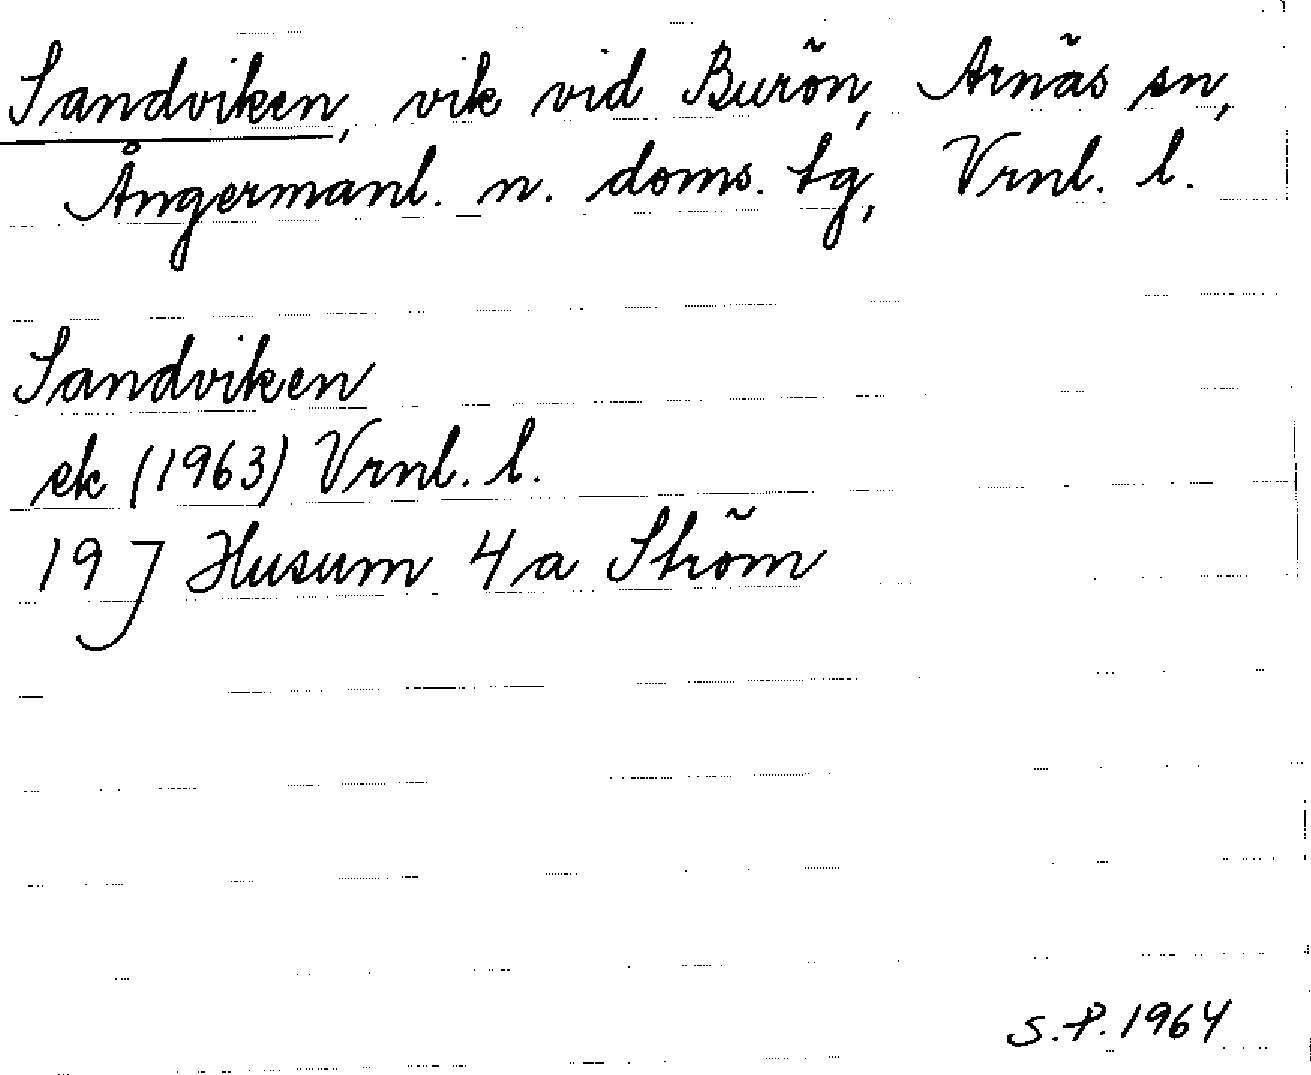 Sandviken, vik vid Burön, Arnäs sn,
Ångermanl. n. doms. tg, Vrnl. l.
Sandviken
ek (1963) Vrnl. l.
19 J Husum 4 a Ström
S.P. 1964